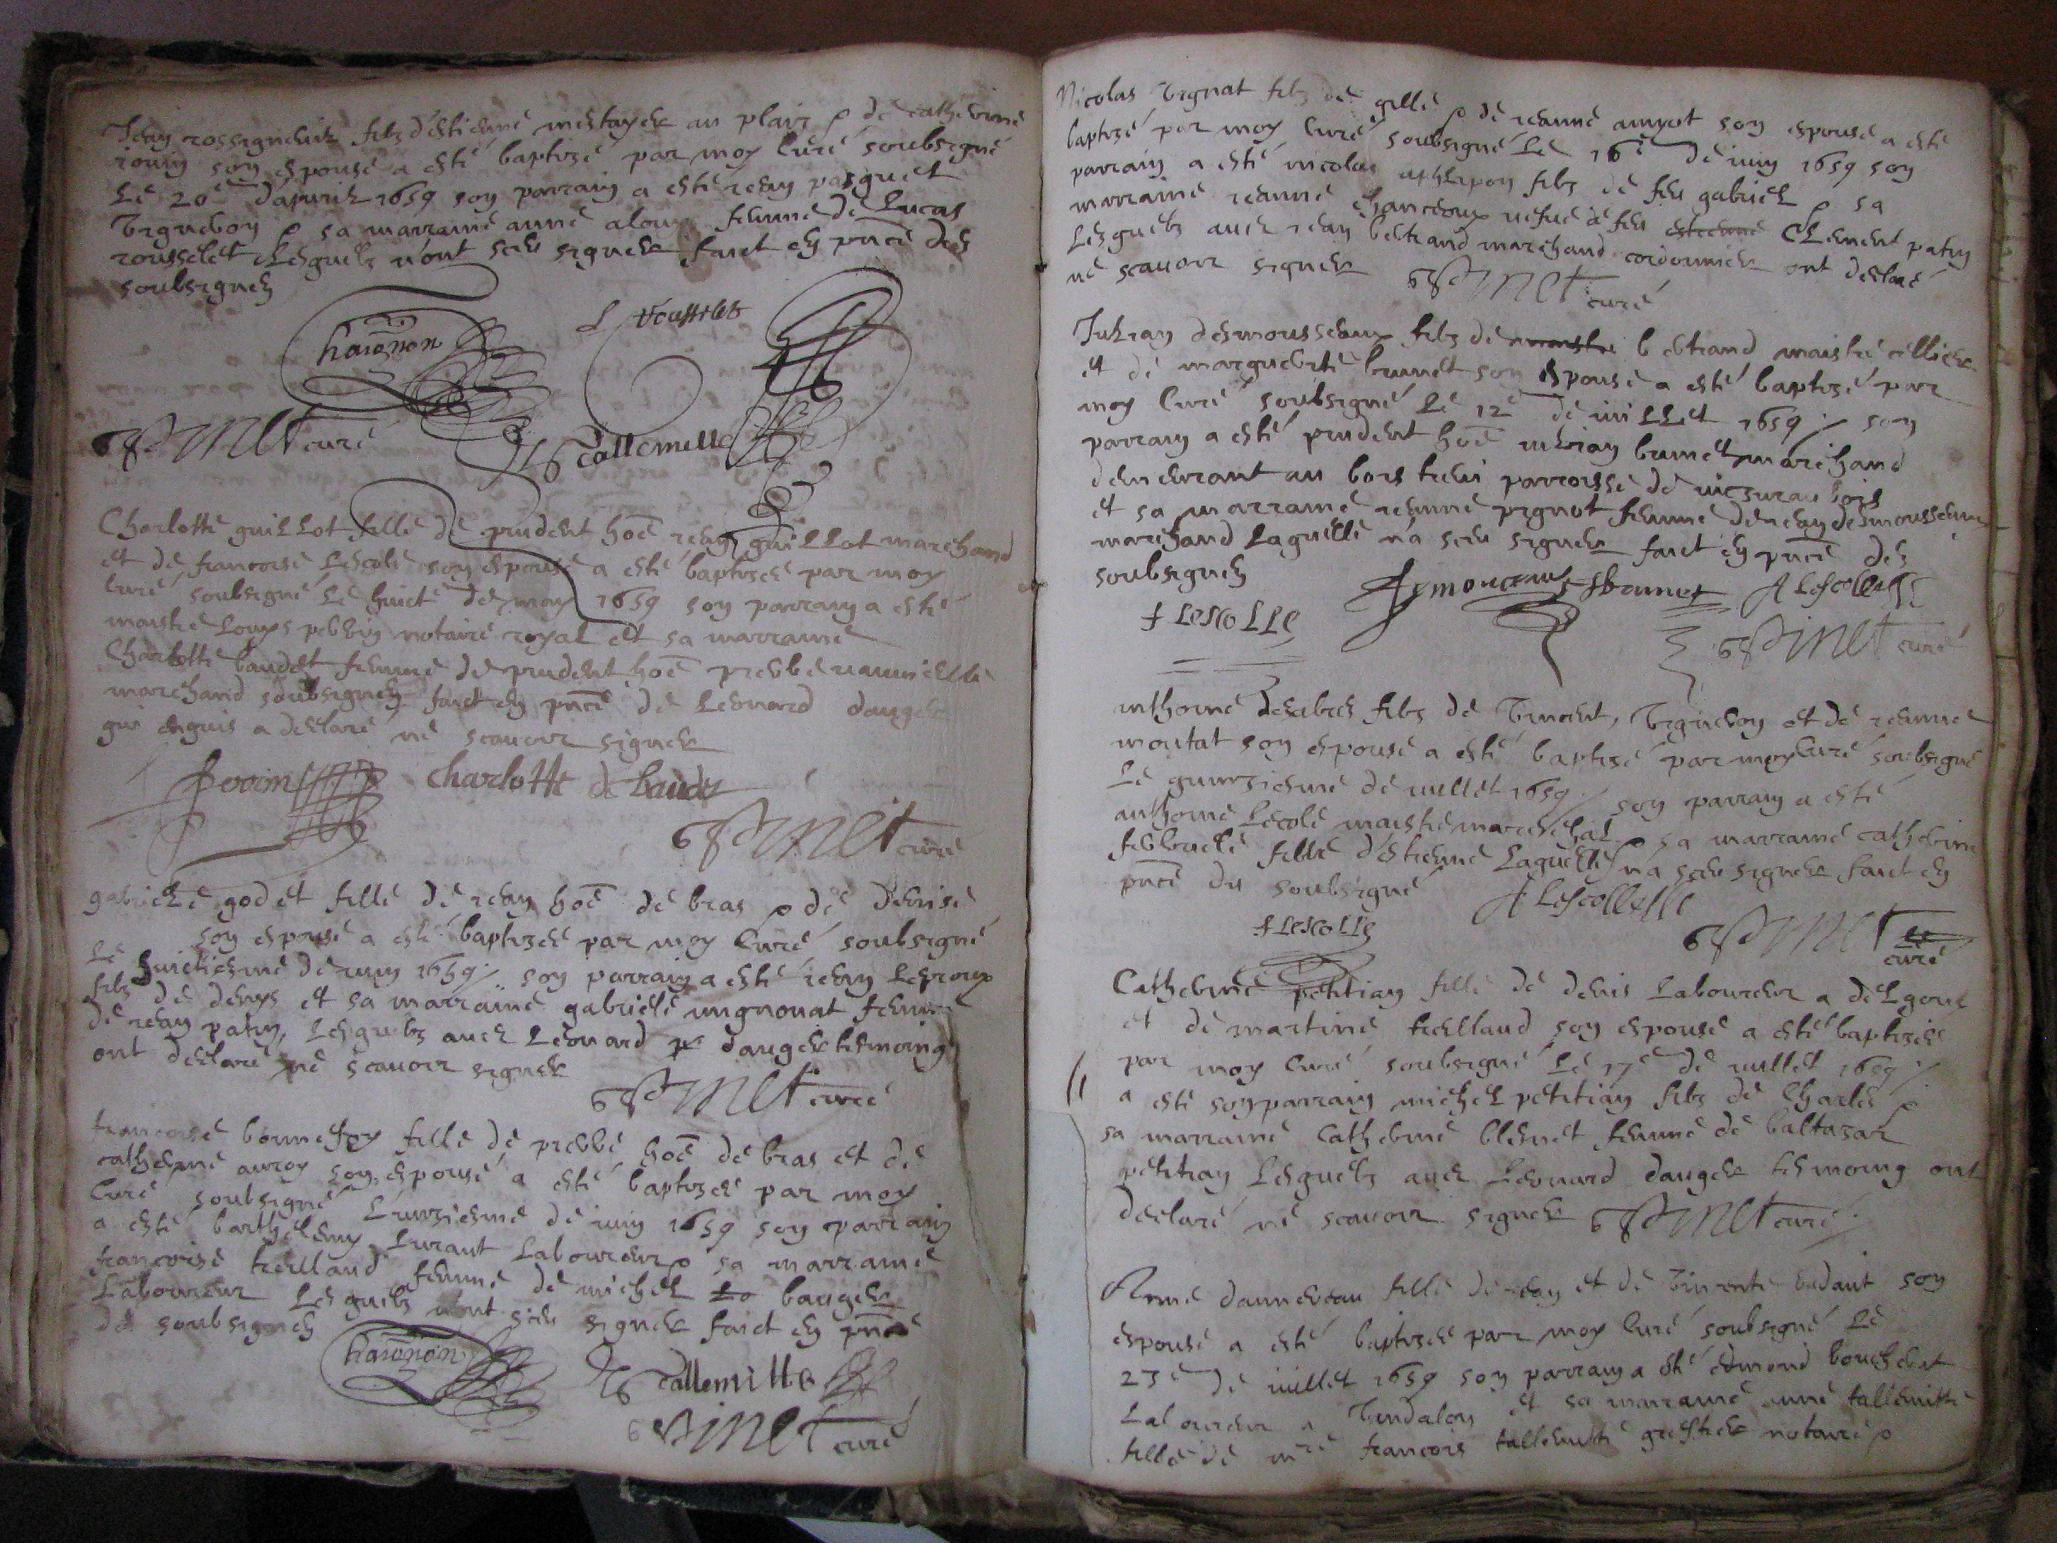 Jean rossigneux filz d'estienne mestayer au plaix & de catherine
son espouse a esté baptizé par moy curé soubsigné
Le 20e d'apvril 1659 son parrain a esté jean pasquet
vigneron & sa marraine anne femme de Lucas
rousselet Lesquelz n'ont sceu signer faict en pnce des
soubsignez
L rousselet
Pinet curé
Tallemitte
Charlotte guillot fille de prudent hoe jean guillot marchand
et de francoise Lescole son espouse a esté baptizee par moy
curé soubsigné Le huicte de may 1659 son parrain a esté
maistre Louys perrin notaire royal et sa marraine
Charlotte baudet femme de prudent hoe pierre
marchand soubsignez faict en pnce de Leonard dauger
qui enquis a declaré ne scavoir signer
Perrin Charlotte de baudet
Pinet curé
gabriele godet fille de jean hoe de bras & de denise
son espouse a esté baptizee par moy curé soubsigné
Le huictiesme de juin 1659 son parrain a esté jean Leroux
filz de denys et sa marraine gabriele femme
de jean patin, Lesquelz avec Leonard dauger tesmoing
ont declaré ne scavoir signer
Pinet curé
francoise bonnefoy fille de pierre hoe de bras et de
catherine auroy son espouse a esté baptizee par moy
curé soubsigné L'unziesme de juin 1659 son parrain
a esté barthelemy Lurant Laboureur & sa marraine
francoise treilland femme de michel bauger
Laboureur Lesquelz n'ont sceu signer faict en pnce
des soubsignez
Tallemitte
Pinet curé
Nicolas vignat filz de gille & de jeanne amyot son espouse a esté
baptizé par moy curé soubsigné Le 16e de juin 1659 son
parrain a esté nicolas filz de feu gabriel & sa
marraine jeanne chanceaux vefve de feu estienne Clement patin
Lesquelz avec jean bertrand marchand cordonnier ont declaré
ne scavoir signer Pinet curé
Julian desmousseaux filz de maistre bertrand maistre cellier
et de marguerite brunet son espouse a esté baptizé par
moy curé soubsigné Le 12e de juillet 1659 son
parrain a esté prudent hoe julian brunet marchand
demeurant au bois parroisse de
et sa marraine jeanne pignot femme de jean desmousseaux
marchand Laquelle n'a sceu signer faict en pnce des
soubsignez
f Lescolle Jbrunet A Lescolle
Pinet curé
anthoine desabres filz de vincent, vigneron et de jeanne
moutat son espouse a esté baptizé par moy curé soubsigné
Le quinziesme de juillet 1659 son parrain a esté
anthoine Lecole maistre mareschal & sa marraine catherine
fille d'estienne Laquelle n'a sceu signer faict en
pnce du soubsigné A Lescolle
f Lescolle
Pinet curé
Catherine petitian fille de denis Laboureur a
et de martine treilland son espouse a esté baptizee
par moy curé soubsigné Le 17e de juillet 1659
a esté son parrain michel petitian filz de Charles &
sa marraine Catherine blenet femme de baltazar
petitian Lesquelz avec Leonard dauger tesmoing ont
declaré ne scavoir signer Pinet curé
Anne dauneveau fille de jean et de vincente bedaut son
espouse a esté baptizee par moy curé soubsigné Le
23e de juillet 1659 son parrain a esté edmond boucherat
Laboureur a et sa marraine anne tallemitte
fille de mre francois tallemitte greffier notaire &